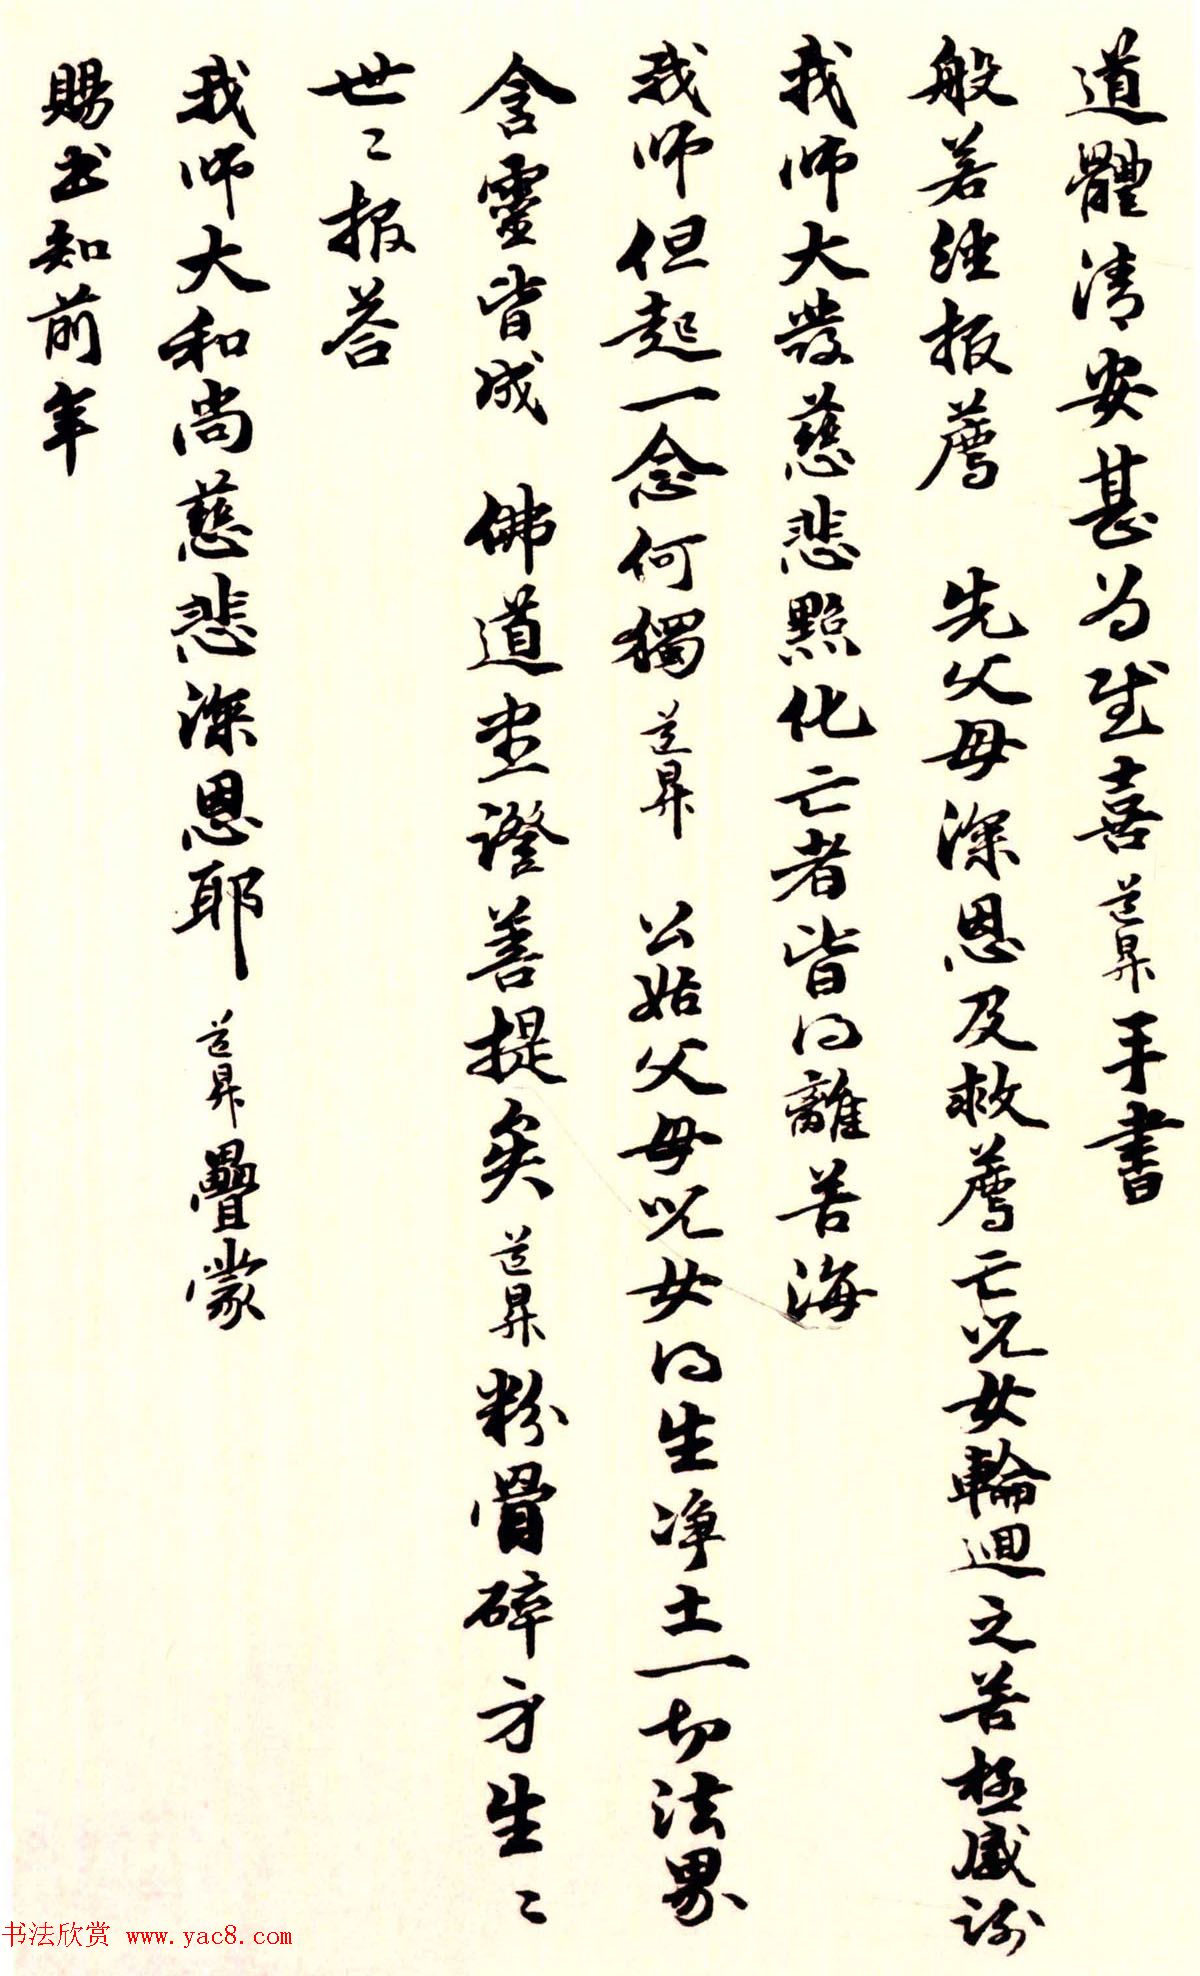 道體清安甚为慰喜道昇手書
般若經报薦先父母深恩及救薦亡児女輪迴之苦極感谢
我师大發慈悲點化亡者皆得離苦海
我师但起一念何獨道昇公姑父母児女得生净土一切法界
含靈皆成佛道盡證菩提矣道昇粉骨碎身生〻
世〻报荅
我师大和尚慈悲深恩耶道昇疊蒙
賜书知前年
书法欣赏 www.yac8.com